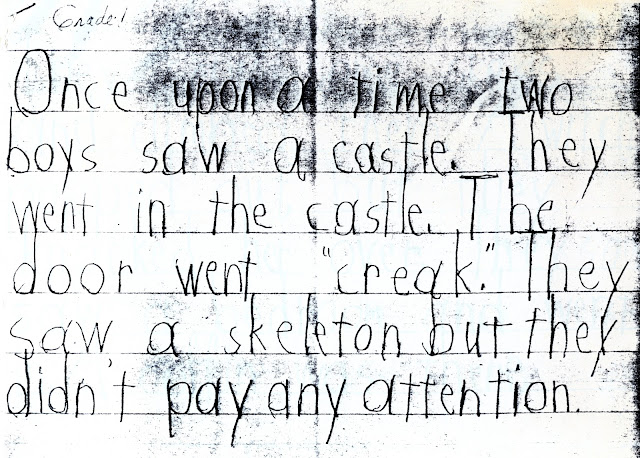 Grade 1
Once upon a time two
boys saw a castle. They
went in the castle. The
door went "creak." They
saw a skeleton but they
didn't pay any attention.